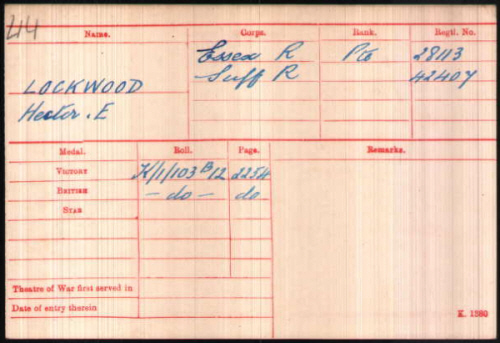 Name. Corps. Rank. Regtl. No.
Essex R Pte 28113
LOCKWOOD Suff R 42407
Hector. E
Medal. Roll. Page. Remarks.
VICTORY K/1/103 B12 2254
BRITISH - do - do
STAR
Theatre of War first served in
Date of entry therein
K. 1380